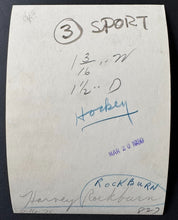 ③ SPORT
1 3/16 .. W
1 1/2 .. D
Hockey
MAR 20
ROCKBURN
Harvey Rockburn
P27